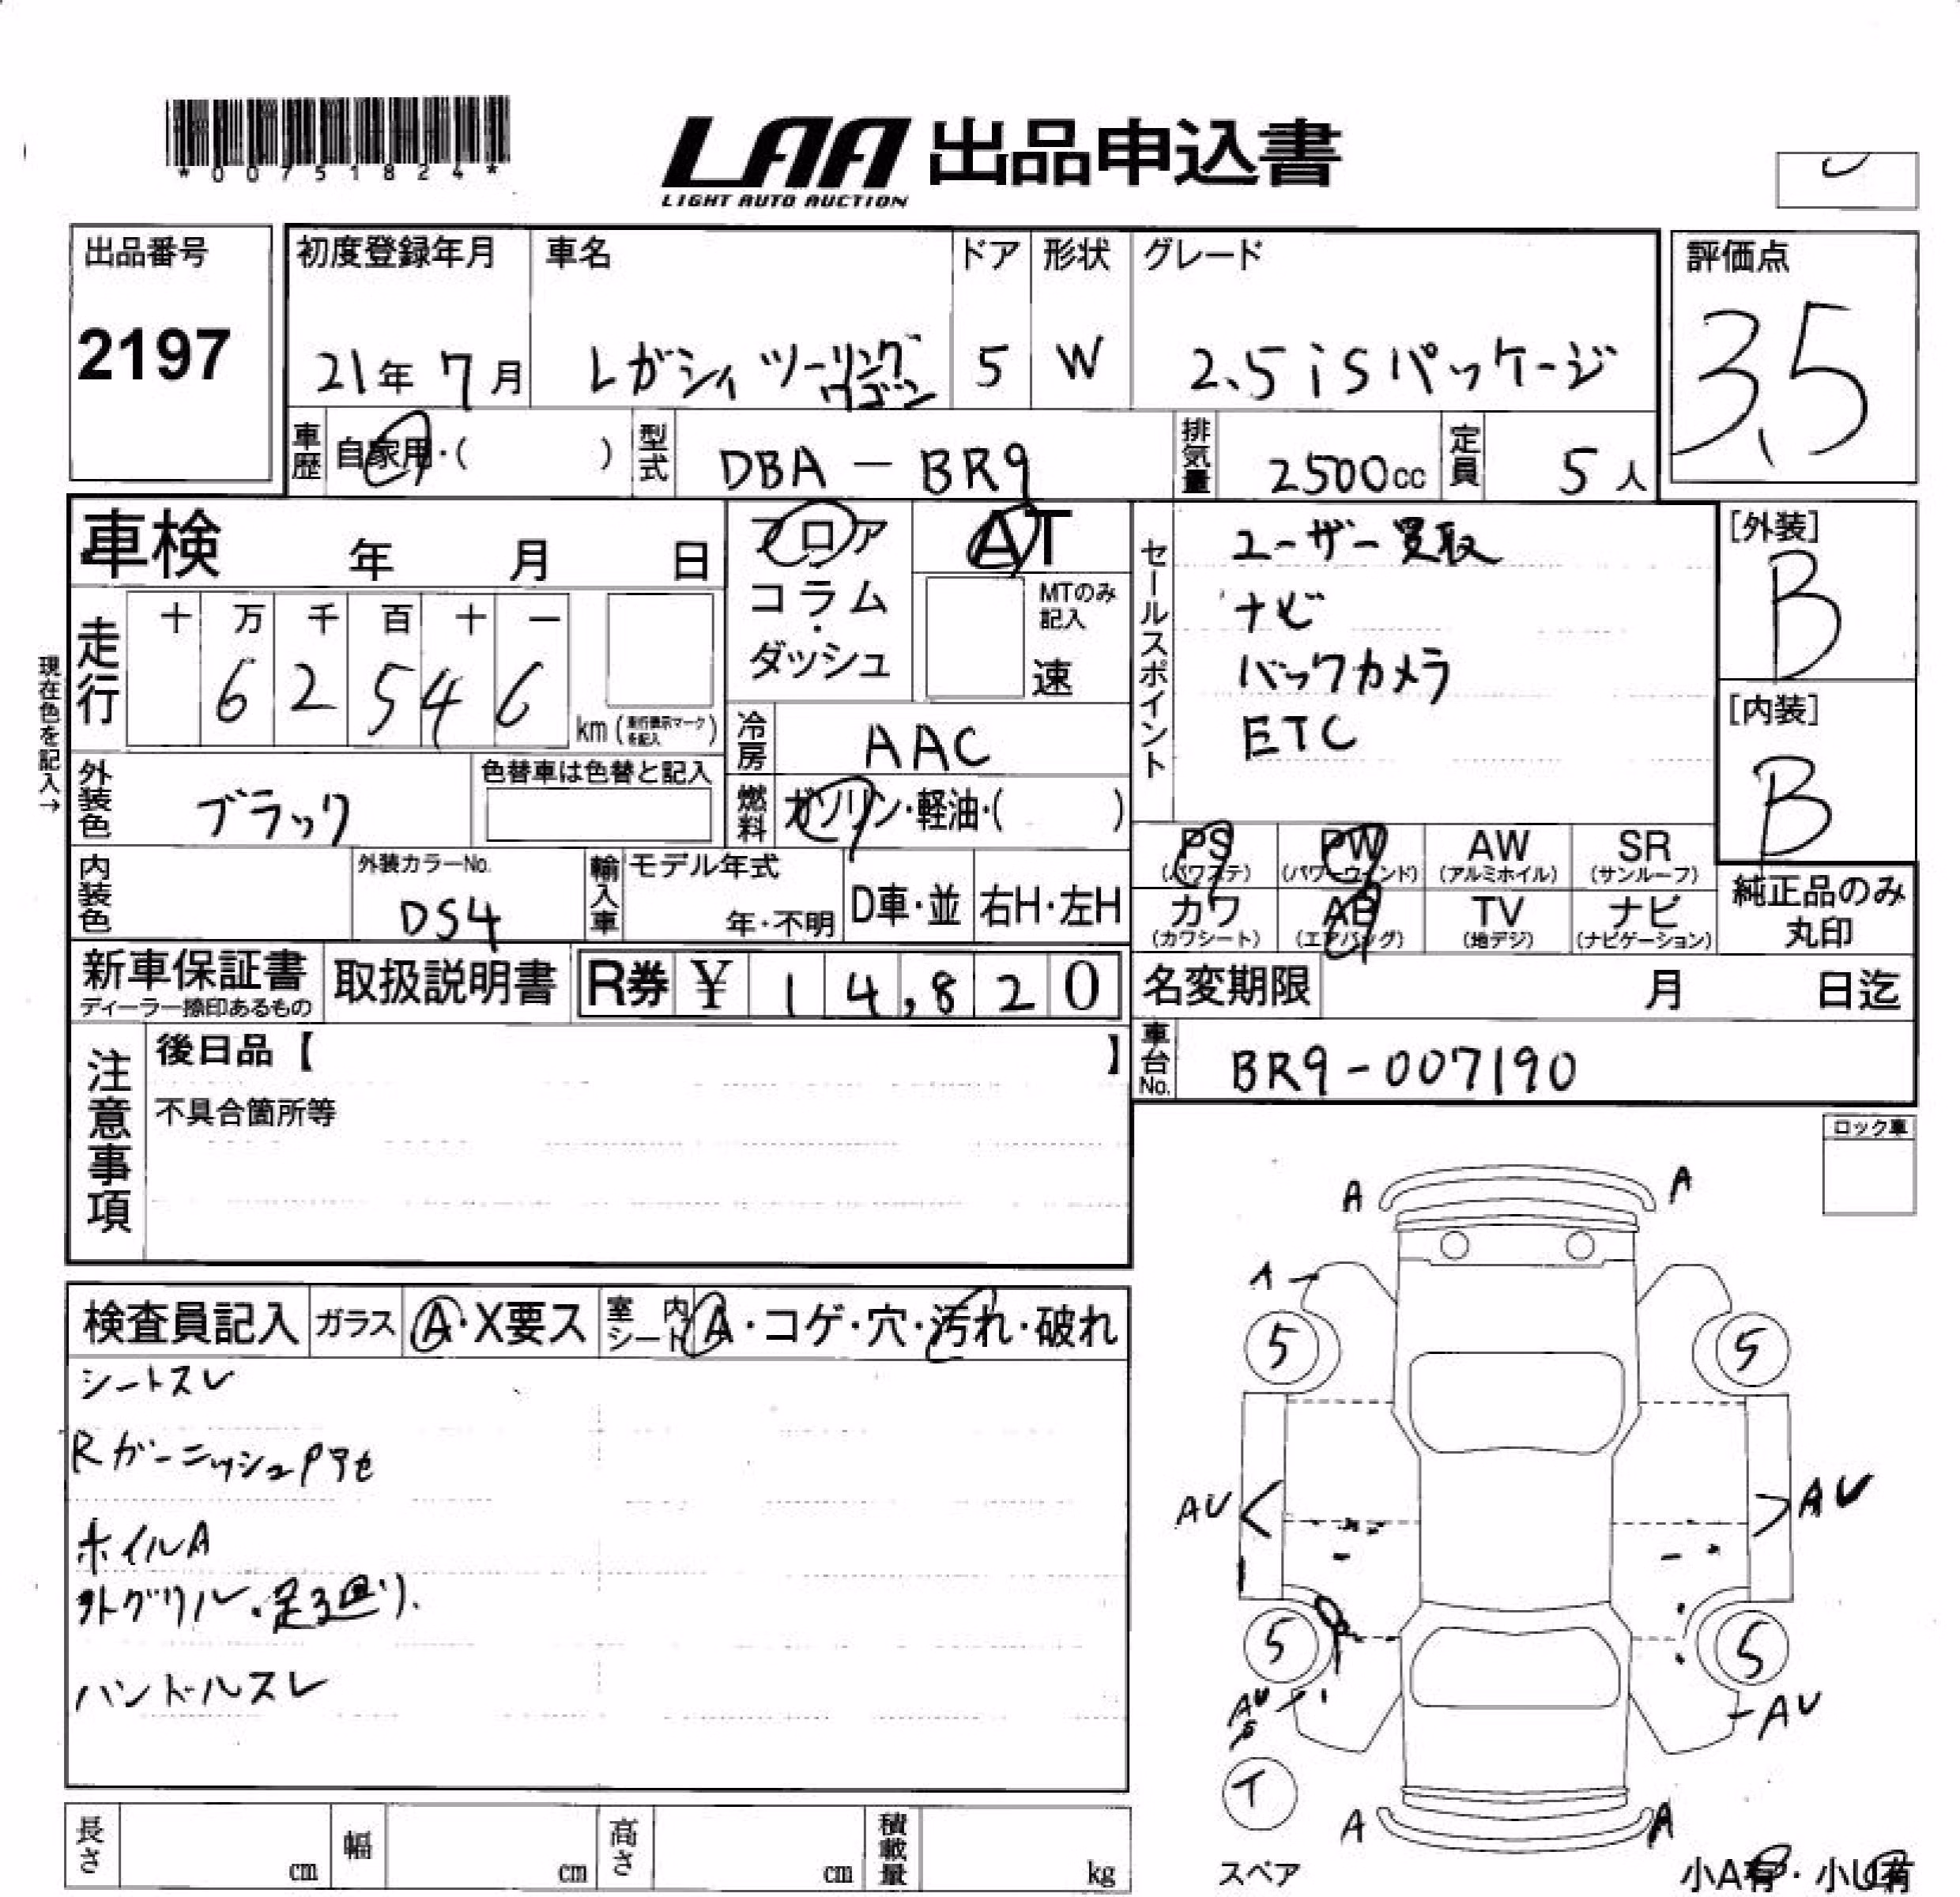 *00751824*
LAA 出品申込書
LIGHT AUTO AUCTION
出品番号
2197
初度登録年月
21年 7月
車名
レガシィ ツーリング
ワゴン
ドア
5
形状
W
グレード
2.5 i Sパッケージ
評価点
3.5
車歴
自家用・( )
型式
DBA - BR9
排気量
2500cc
定員
5人
車検 年 月 日
フロア
コラム
・
ダッシュ
AT
MTのみ
記入
速
セールスポイント
ユーザー買取
ナビ
バックカメラ
ETC
[外装]
B
[内装]
B
現在色を記入→
走行
十 万 千 百 十 一
6 2 5 4 6
km (走行表示マークを記入)
冷房
AAC
外装色
ブラック
色替車は色替と記入
燃料
ガソリン・軽油・( )
PS
(パワステ)
PW
(パワーウインド)
AW
(アルミホイル)
SR
(サンルーフ)
カワ
(カワシート)
AB
(エアバッグ)
TV
(地デジ)
ナビ
(ナビゲーション)
純正品のみ
丸印
内装色
外装カラーNo.
DS4
輸入車
モデル年式
年・不明
D車・並
右H・左H
新車保証書
ディーラー捺印あるもの
取扱説明書
R券 ¥ 14,820
名変期限 月 日迄
車台No.
BR9-007190
注意事項
後日品【 】
不具合箇所等
ロック車
検査員記入
ガラス
A・X要ス
室内
シート
A・コゲ・穴・汚れ・破れ
シートスレ
Rガーニッシュアセ
ホイルA
外グリル・足廻り.
ハンドルスレ
A A
A
5 5
AU AU
5 5
AU
S
AU
T
スペア
A A
小A有・小U有
長さ cm
幅 cm
高さ cm
積載量 kg